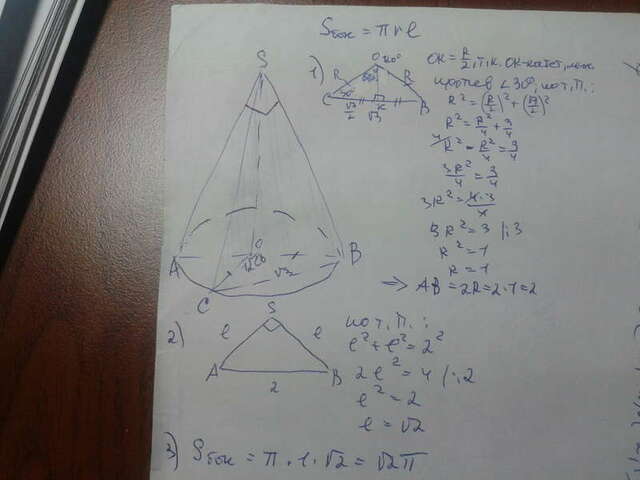 Sбок = πrl
S
A
B
C
O
120°
√3
1)
O 120°
60°
R
R
30°
C
√3/2
K
√3
B
OK = R/2, т.к. OK-катет, леж.
против ∠30°, по т. П.:
R² = (R/2)² + (√3/2)²
R² = R²/4 + 3/4
R² - R²/4 = 3/4
3R²/4 = 3/4
3R² = 4·3/4
3R² = 3 |:3
R² = 1
R = 1
⇒ AB = 2R = 2·1 = 2
2)
S
l
l
A
B
2
по т. П.:
l² + l² = 2²
2l² = 4 |:2
l² = 2
l = √2
3) Sбок = π · 1 · √2 = √2π